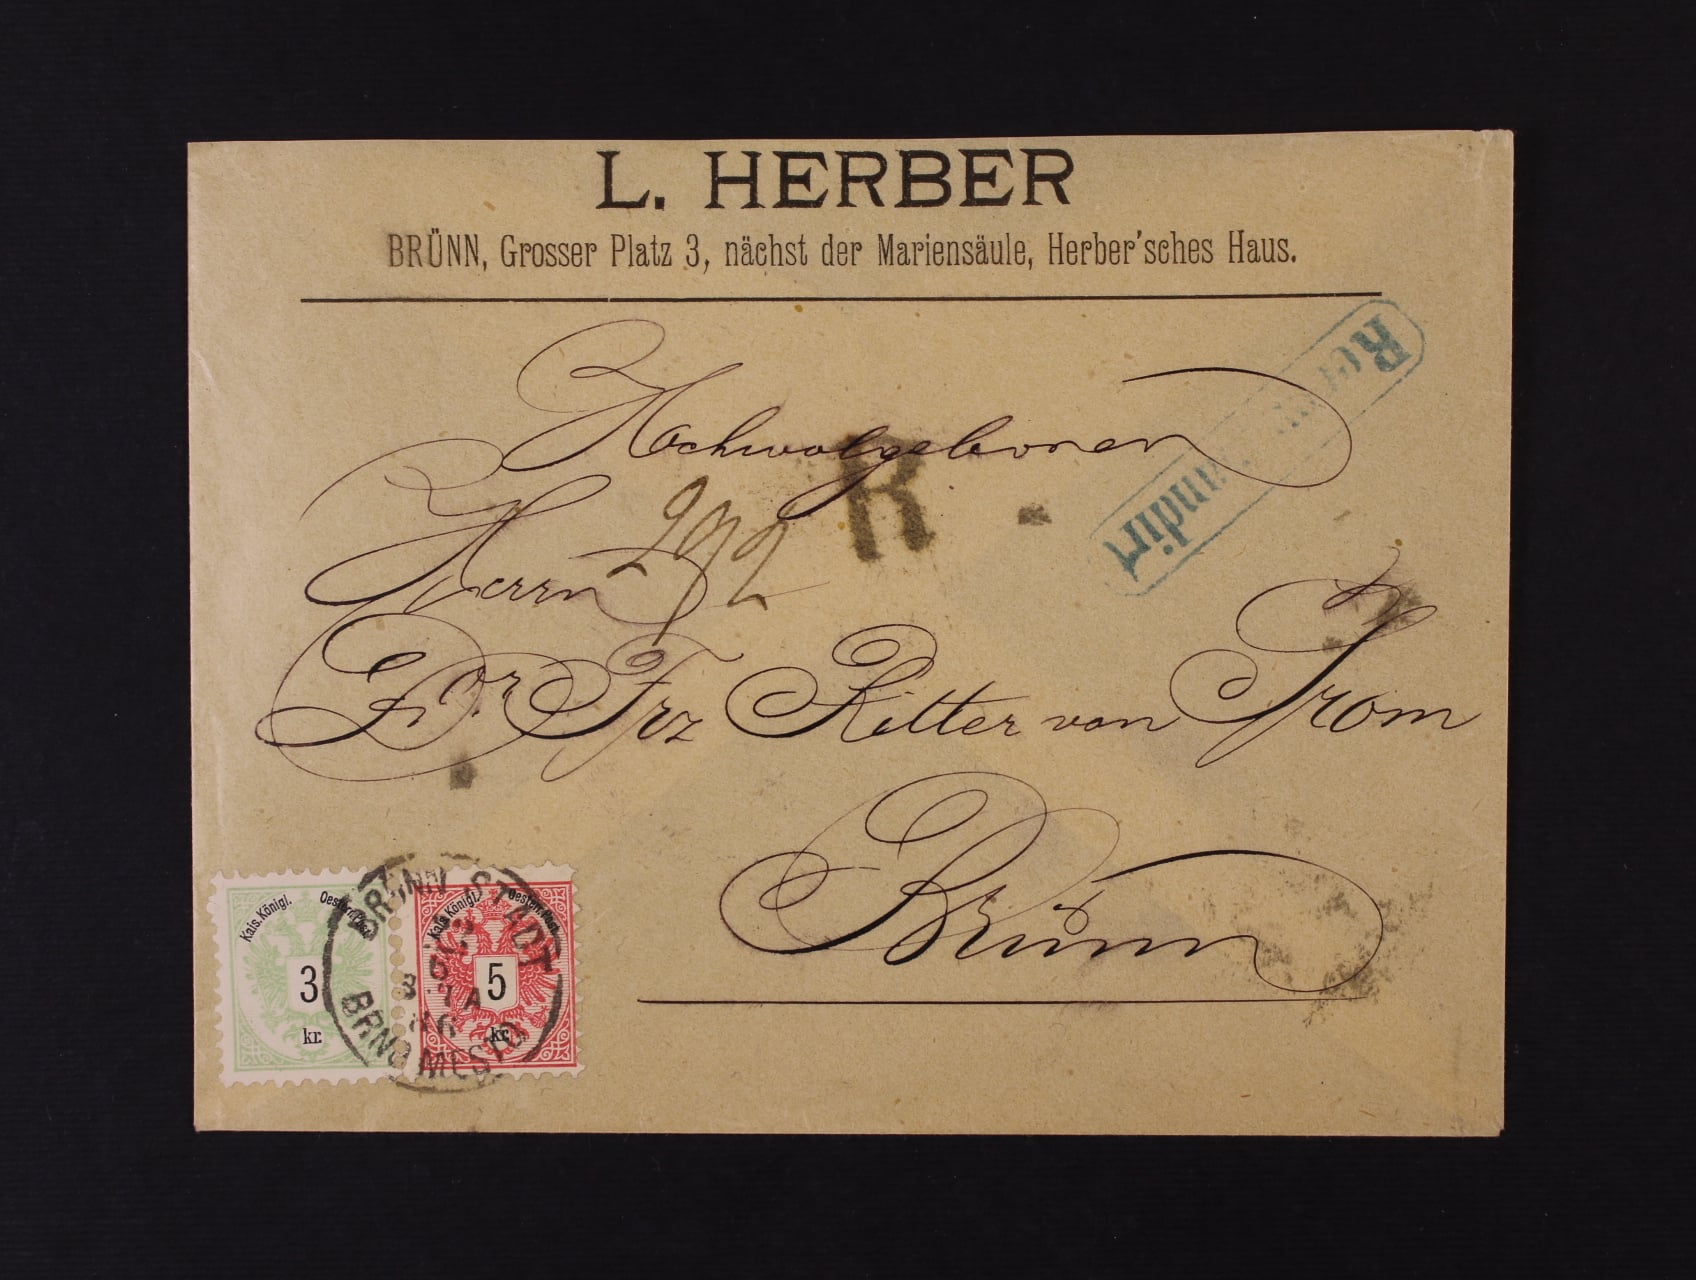 L. HERBER
BRÜNN, Grosser Platz 3, nächst der Mariensäule, Herber'sches Haus.
Hochwolgeboren
R
292
Herrn
Dor. Frz Ritter von Srom
Brünn
Kais. Königl. Oesterr. Post
3
kr.
Kais. Königl. Oesterr. Post
5
kr.
BRÜNN STADT
BRNO MĚSTO